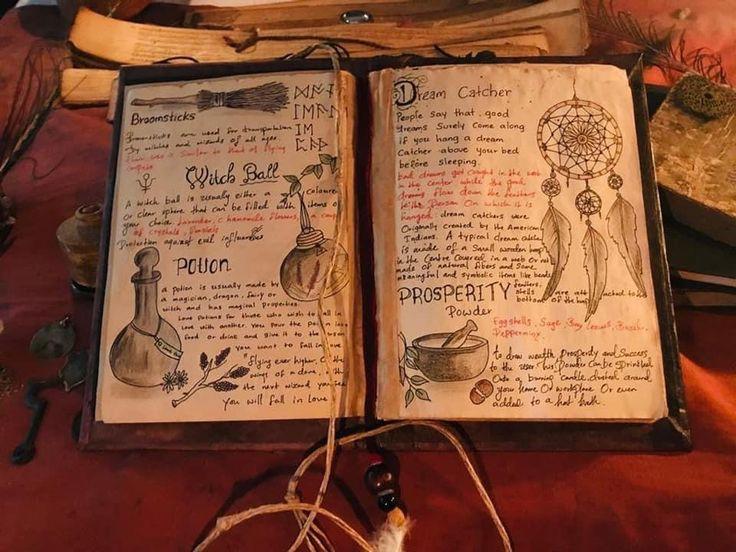 Broomsticks
Broomsticks are used for transportation
by witches and wizards of all ages.
flow use is similar to that of flying
carpets
Witch Ball
A witch ball is usually either a coloured
or clear sphere that can be filled with items of
your choice Lavender, chamomile flowers, a
of crystals,
Protection against evil influences
Potion
a potion is usually made by
a magician, dragon, fairy or
witch and has magical properties.
Love potions for those who wish to fall in
love with another. You pour the potion into
food or drink and give it to the
you want to fall in love
"flying ever higher, on the
wings of a dove,
the next wizard you see
you will fall in love
Dream Catcher
People say that good
dreams Surely come along
if you hang a dream
Catcher above your bed
before sleeping.
bad dreams get caught in the web
in the center while the good
dreams flow down the feathers
to the Person On which it is
hanged. dream catchers were
Originally created by the American
Indians. A typical dream catcher
is made of a Small wooden hoop
in the Centre Covered in a web or net
made of natural fibers and Some
meaningful and symbolic items like beads
feathers.
shells are attached to
bottom of the hoop
PROSPERITY
Powder
Eggshells, Sage, Bay leaves,
Peppermint.
to draw wealth, Prosperity and Success
to the user this Powder Can be Sprinkled
Onto a burning candle, dusted around
your home Or workplace Or even
added to a hot bath